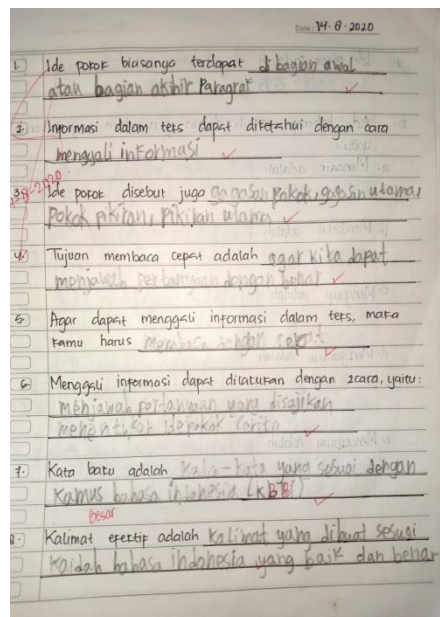 Date: 14-8-2020
1. Ide pokok biasanya terdapat di bagian awal
atau bagian akhir Paragraf
2. Informasi dalam teks dapat diketahui dengan cara
menggali informasi
3. Ide pokok disebut juga gagasan pokok, gagasan utama,
Pokok pikiran, pikiran utama
4. Tujuan membaca cepat adalah agar kita dapat
menjawab pertanyaan dengan benar
5. Agar dapat menggali informasi dalam teks, maka
kamu harus membaca dengan cepat
6. Menggali informasi dapat dilakukan dengan 2cara, yaitu:
menjawab pertanyaan yang disajikan
ide pokok cerita
7. Kata baku adalah kata-kata yang sesuai dengan
Kamus bahasa indonesia (KBBI)
besar
8. Kalimat efektif adalah kalimat yang dibuat sesuai
kaidah bahasa indonesia yang baik dan benar